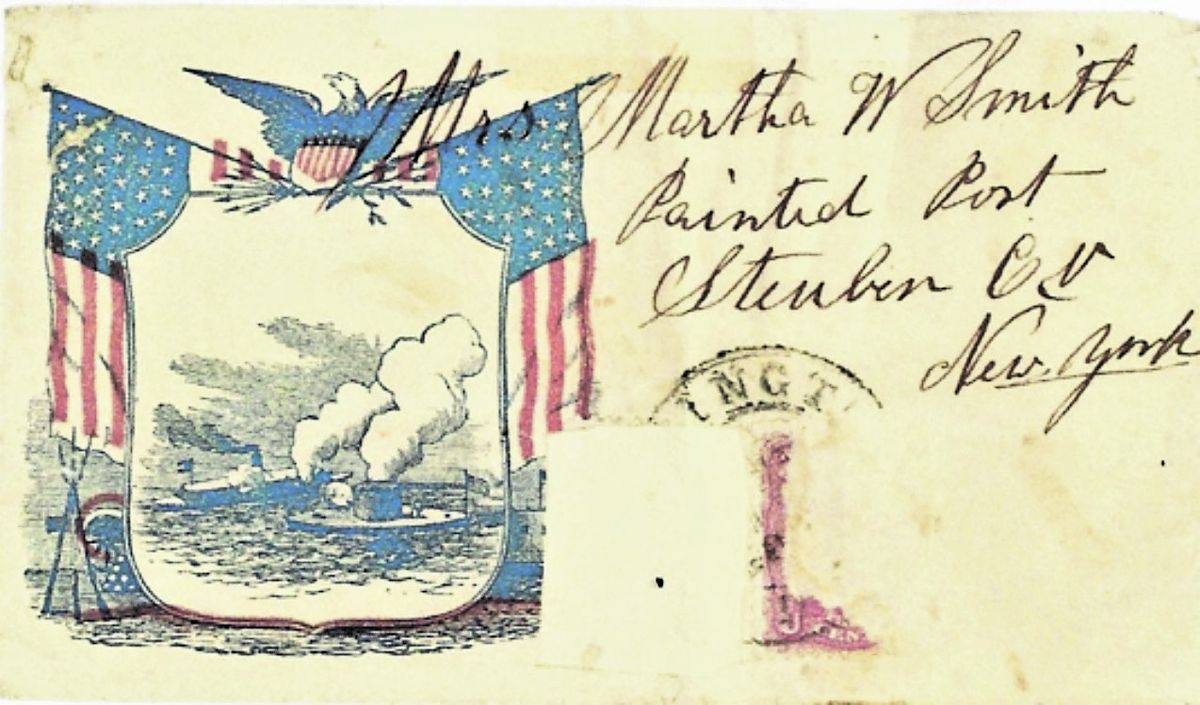 Mrs Martha W Smith
Painted Post
Steuben Co
New York
INGT